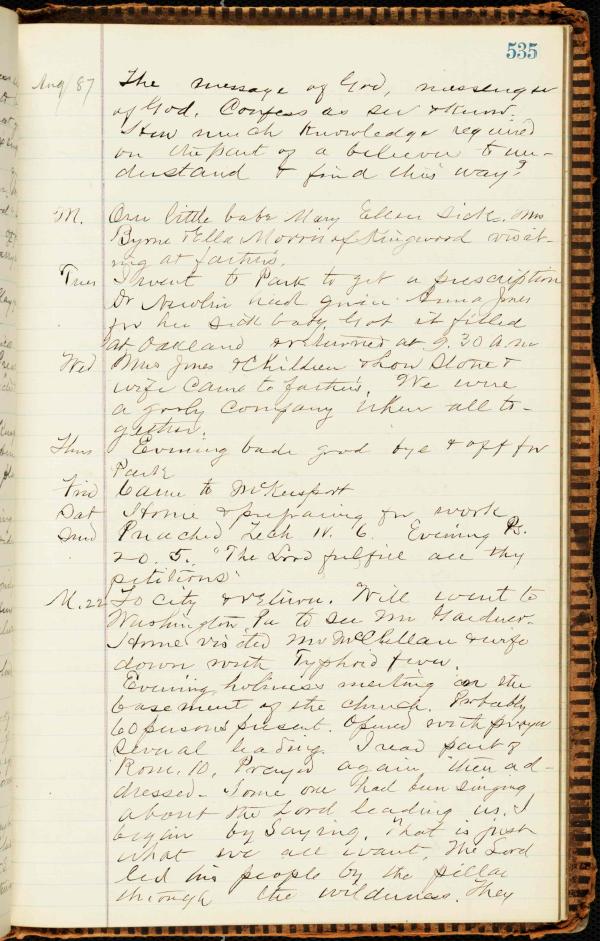 535
Aug 87 The message of God, messenger
of God. Confess as sin & know.
How much knowledge required
on the part of a believer to un-
derstand & find this way?
M. Our little babe Mary Ellen sick. Mrs
Byrne & Ella Morris of Kingwood visit-
ing at fathers.
Tues I went to Park to get a prescription
Dr Newlin had given Anna Jones
for her sick baby. Got it filled
at Oakland & returned at 9.30 a.m
Wed Mrs Jones & Children & Lou Stone &
wife came to fathers. We were
a goodly company when all to-
gether.
Thurs Evening bade good bye & off for
Park
Frid Came to McKeesport
Sat Home & preparing for work
Sund Preached Zech IV. 6. Evening Ps.
20. 5. "The Lord fulfill all thy
petitions"
M. 22 To city & return. Will went to
Washington Pa to see Mr Gardner.
Home visited Mr McClellan & wife
down with Typhoid fever.
Evening holiness meeting in the
basement of the church. Probably
60 persons present. Opened with prayer
several leading. I read part of
Rom. 10. Prayed again then ad-
dressed. Some one had been singing
about the Lord leading us. I
began by saying. That is just
what we all want. The Lord
led his people by the pillar
through the wilderness. They